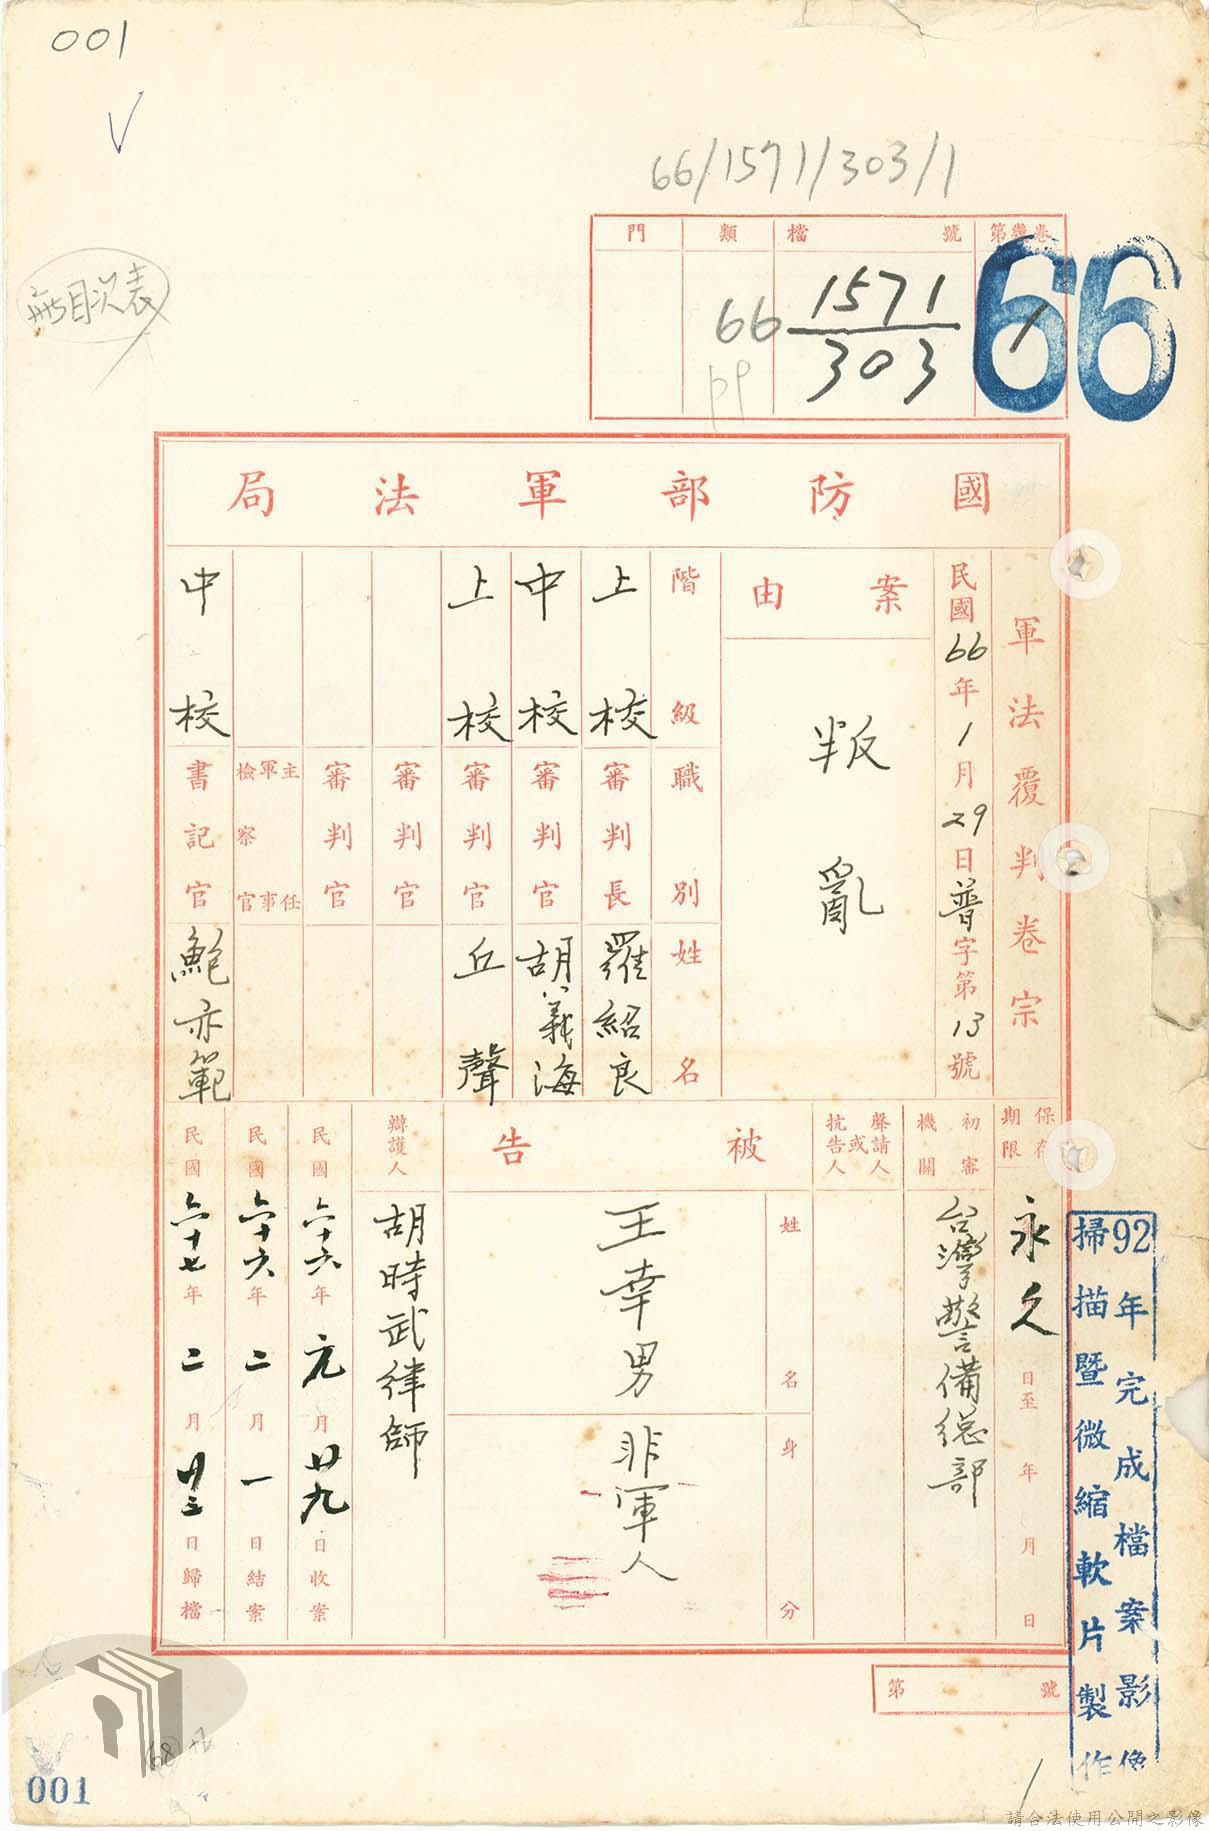 001
V
66/1571/303/1
無目次表
門 類 檔號 第幾卷
66 1571/303 1
66
國防部軍法局
軍法覆判卷宗
民國66年1月29日普字第13號
案由
叛亂
階級 職別 姓名
上校 審判長 羅紹良
中校 審判官 胡義海
上校 審判官 丘聲
審判官
審判官
主任軍事檢察官
中校 書記官 鮑亦範
保存期限
永久
日至年月日
初審機關
台灣警備總部
聲請人或抗告人
被告
姓名
王幸男
身分
非軍人
辯護人
胡時武律師
民國六十六年元月廿九日收案
民國六十六年二月一日結案
民國六十七年二月廿三日歸檔
92年完成檔案影像
掃描暨微縮軟片製作
第號
68
001
請合法使用公開之影像